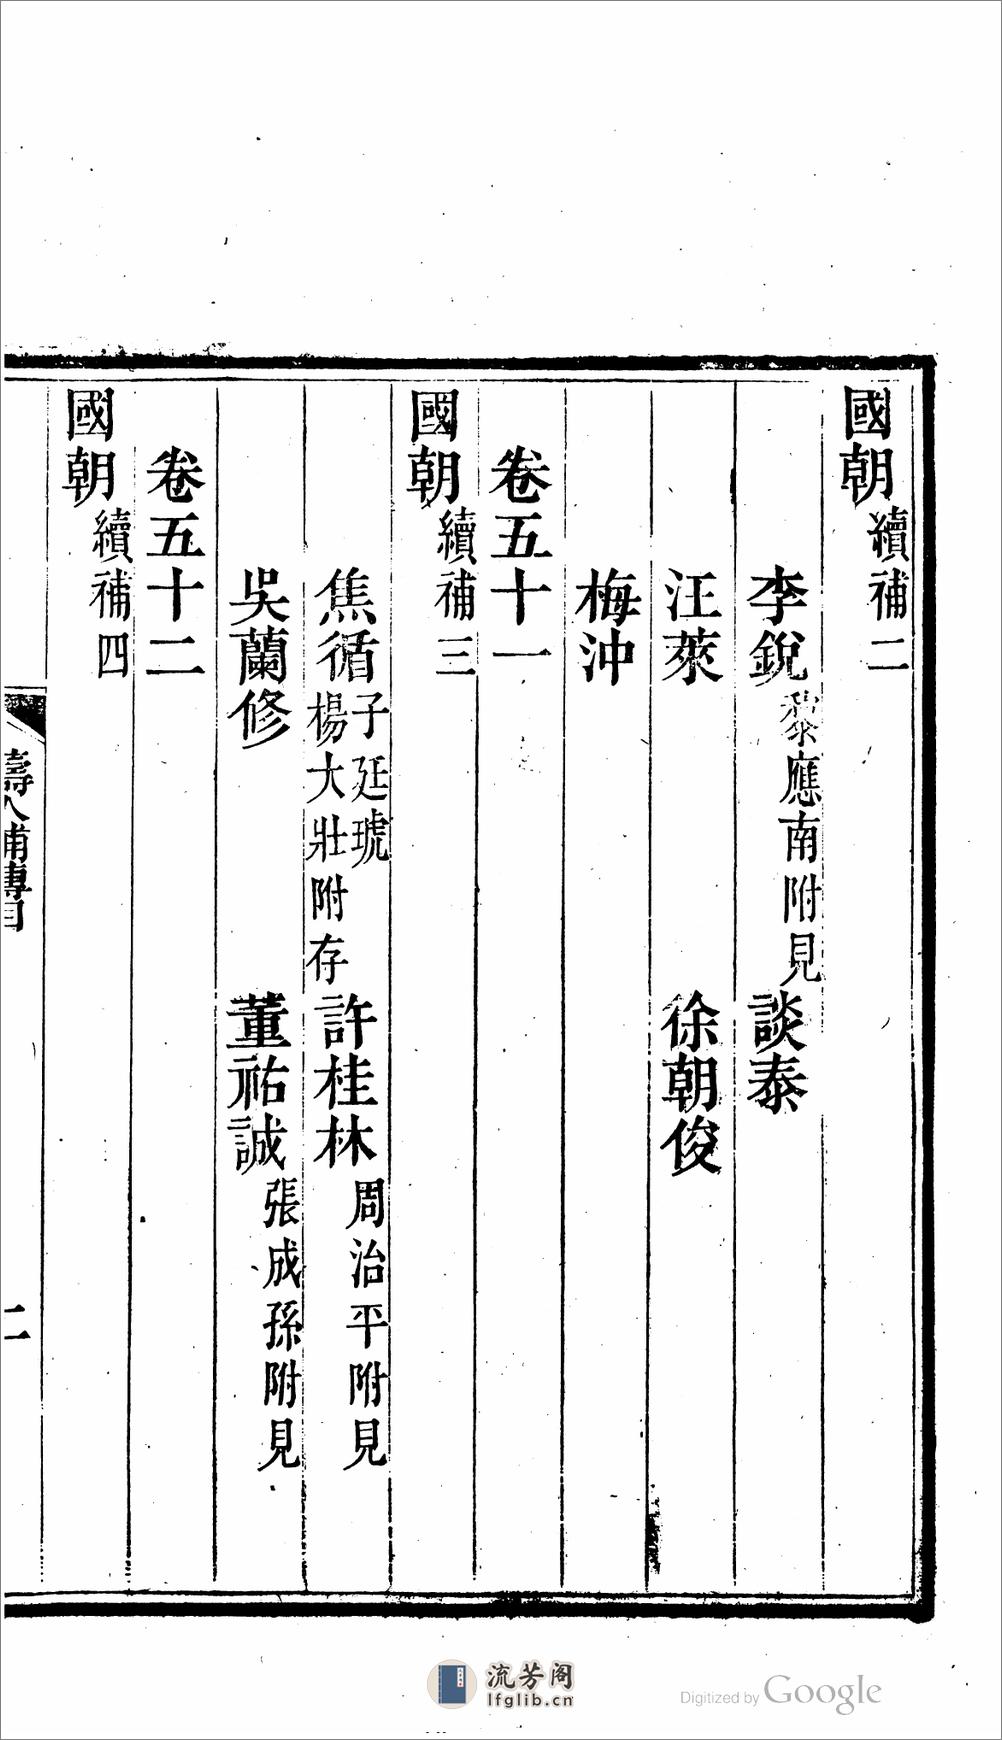 國朝續補二
李銳黎應南附見 談泰
汪萊 徐朝俊
梅沖
卷五十一
國朝續補三
焦循子廷琥楊大壯附存 許桂林周治平附見
吳蘭修 董祐誠張成孫附見
卷五十二
國朝續補四
疇人補傳目
二
流芳阁
lfglib.cn
Digitized by Google